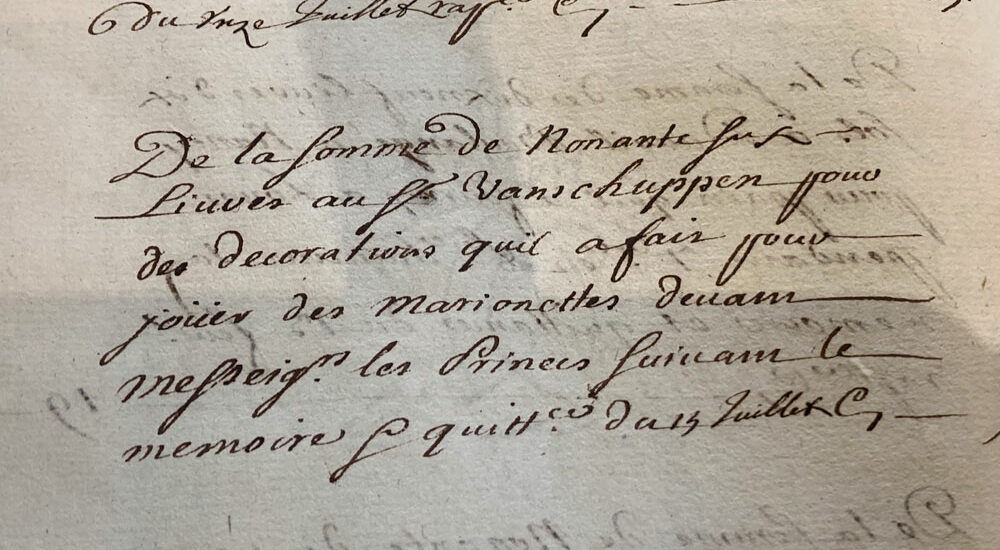 du unze Juillet rapp.
De la somme de Nonante six
Liures au Sr. Vanschuppen pour
des decorations quil a fait pour
joüer des Marionettes deuant
Messeigrs. les Princes suiuant le
memoire & quittce du 15 Juillet Cy